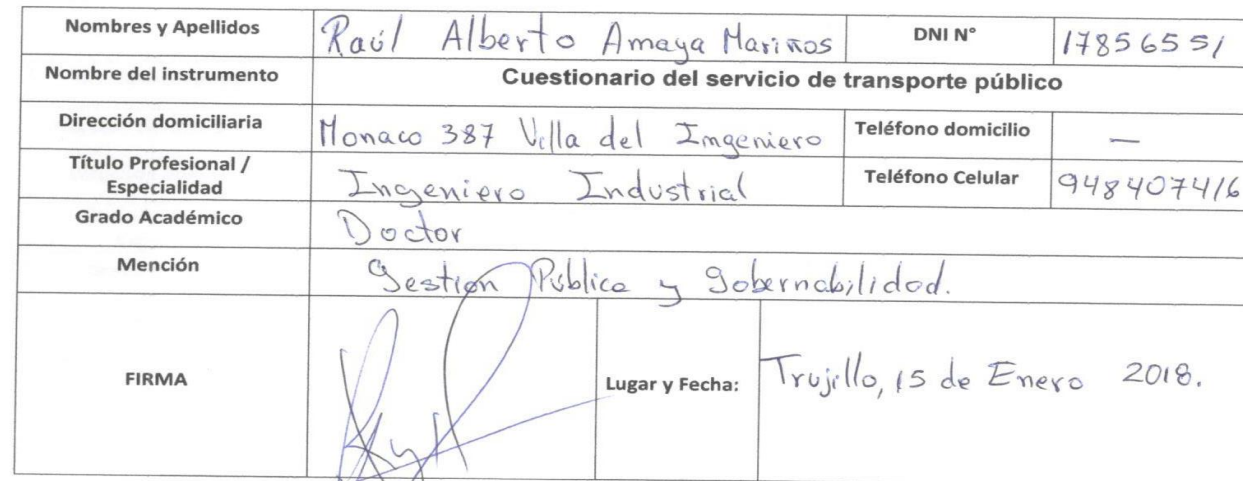 Nombres y Apellidos Raúl Alberto Amaya Mariños DNI N° 17856551
Nombre del instrumento Cuestionario del servicio de transporte público
Dirección domiciliaria Monaco 387 Villa del Ingeniero Teléfono domicilio —
Título Profesional /
Especialidad Ingeniero Industrial Teléfono Celular 948407416
Grado Académico Doctor
Mención Gestion Pública y Gobernabilidad.
FIRMA Lugar y Fecha: Trujillo, 15 de Enero 2018.